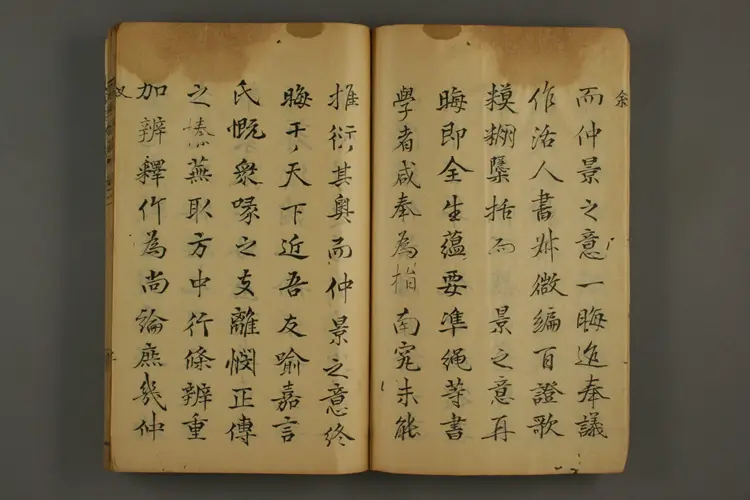 而仲景之意一晦迨奉議
作活人書叔微編百證歌
糢糊檃括而 景之意再
晦即全生蘊要準繩等書
學者咸奉為指南究未能
推衍其奧而仲景之意終
晦于天下近吾友喻嘉言
氏慨衆喙之支離憫正傳
之榛蕪取方中行條辨重
加辨釋作為尚論庶幾仲